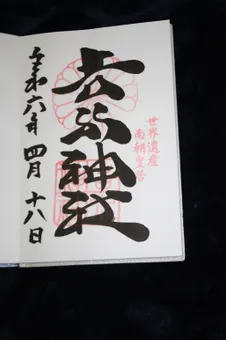 世界遺産
南朝皇居
吉水神社
令和六年四月十八日